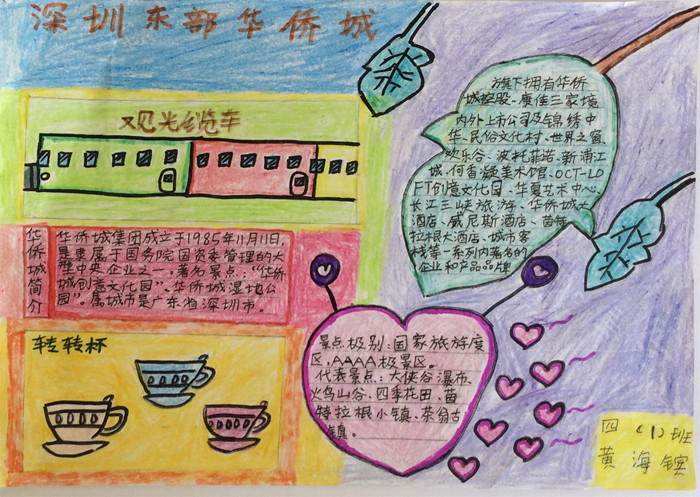 深圳东部华侨城
观光缆车
华侨城简介
华侨城集团成立于1985年11月11日,
是隶属于国务院国资委管理的大
型中央企业之一,著名景点:“华侨
城创意文化园”、华侨城湿地公
园”。属城市是广东省深圳市。
转转杯
旗下拥有华侨
城控股、康佳三家境
内外上市公司及锦绣中
华、民俗文化村、世界之窗
欢乐谷、波托菲诺、新浦江
城、何香凝美术馆、OCT-LO
FT创意文化园、华夏艺术中心、
长江三峡旅游、华侨城大
酒店、威尼斯酒店、茵特
拉根大酒店、城市客
栈等一系列内著名的
企业和产品品牌
景点极别:国家旅游度
区,AAAA极景区。
代表景点:大侠谷瀑布、
火鸟山谷、四季花田、茵
特拉根小镇、茶翁古
镇。
四(1)班
黄海